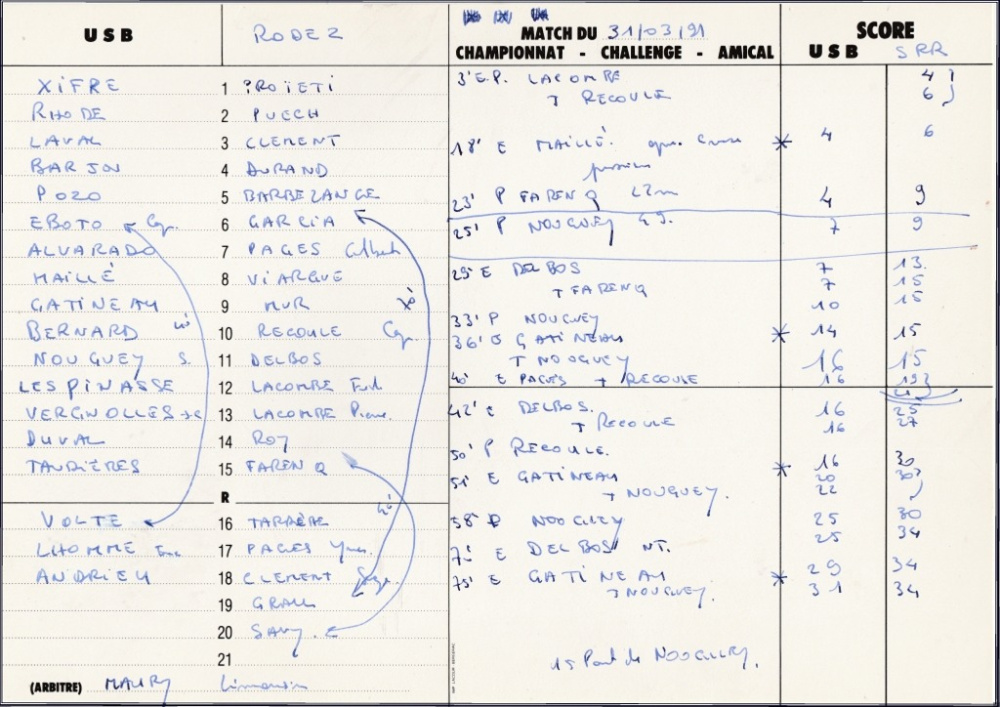 USB RODEZ
MATCH DU 31/03/91
CHAMPIONNAT - CHALLENGE - AMICAL
SCORE
USB SRR
XIFRE 1 PROIETI
RHODE 2 PUECH
LAVAL 3 CLEMENT
BARJOU 4 DURAND
POZO 5 BARBEZANGE
EBOTO Cap. 6 GARCIA
ALVARADO 7 PAGES Gilbert
MAILLÉ 8 VIARGUE
GATINEAU 9 MUR
BERNARD 10 RECOULE Cap.
NOUGUEY S. 11 DELBOS
LESPINASSE 12 LACOMBE Fred.
VERGNOLLES 13 LACOMBE Pierre.
DUVAL 14 ROY
TAURIÈRES 15 FARENQ
R
VOLTE 16 TARRÈRE
LHOMME 17 PAGES Yvan.
ANDRIEU 18 CLEMENT Serge.
19 GRALL
20 SAVY.
21
(ARBITRE) MAURY Limousin
3' E.P. LACOMBE 4
T RECOULE 6
18' E MAILLÉ. * 4 6
23' P FARENQ 22m 4 9
25' P NOUGUEY 7 9
29' E DELBOS 7 13.
T FARENQ 7 15
33' P NOUGUEY 10 15
36' E GATINEAU * 14 15
T NOUGUEY 16 15
40' E PAGES + RECOULE 16 19
21
42' E DELBOS. 16 25
T RECOULE 16 27
50' P RECOULE. 16 30
51' E GATINEAU * 20 30
T NOUGUEY. 22
58' P NOUGUEY 25 30
E DELBOS NT. 25 34
75' E GATINEAU * 29 34
T NOUGUEY. 31 34
15 Pont de NOUGUEY.